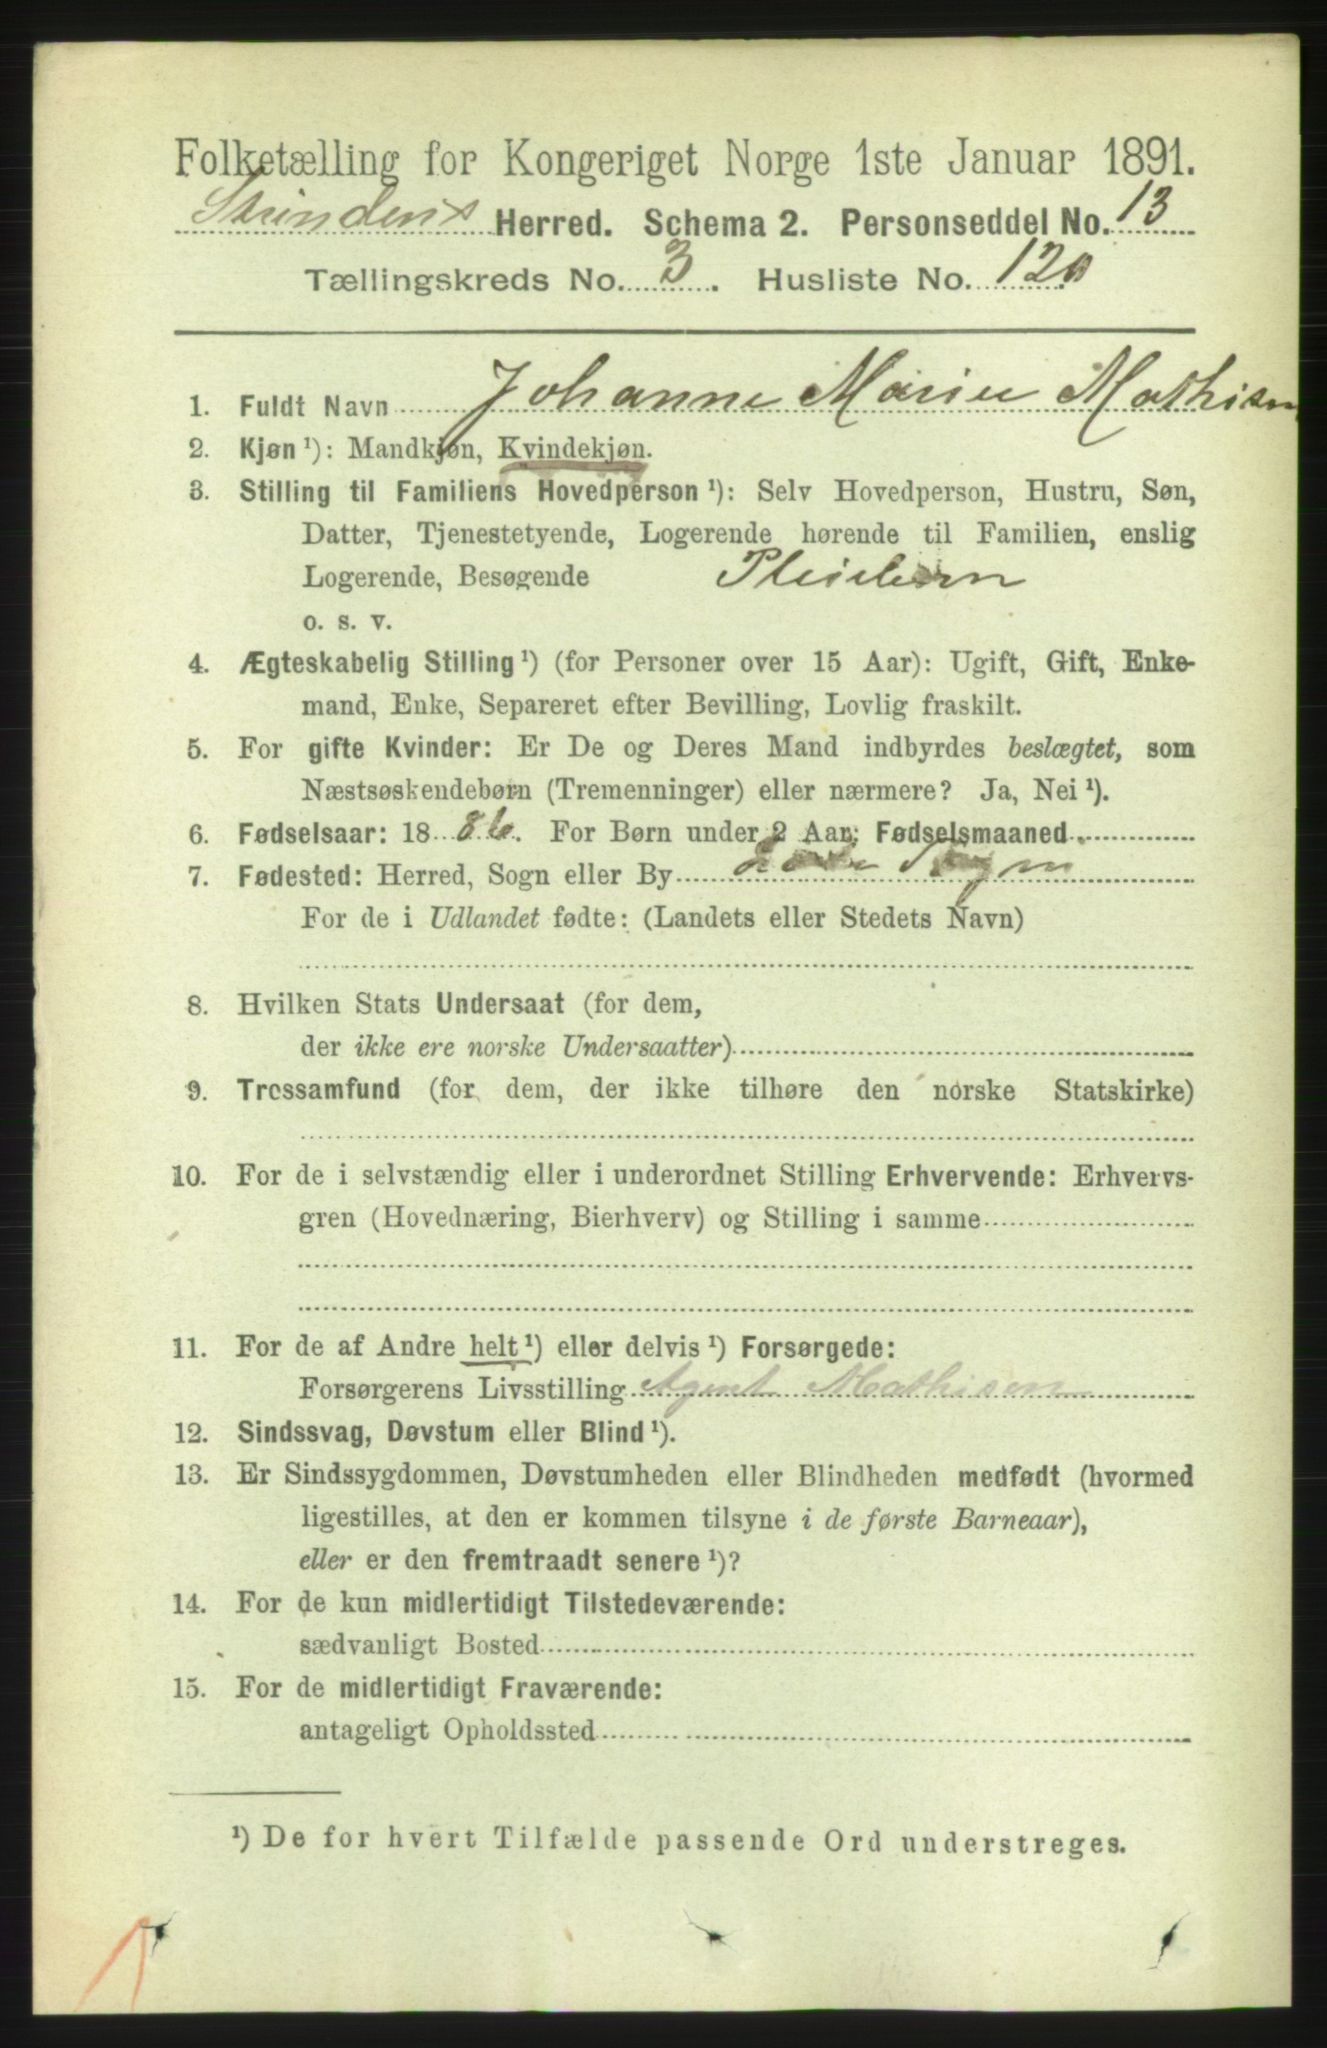 Folketælling for Kongeriget Norge 1ste Januar 1891.
Strindens Herred. Schema 2. Personseddel No. 13
Tællingskreds No. 3. Husliste No. 120
1. Fuldt Navn Johanne Marie Mathisen
2. Kjøn ¹): Mandkjøn, Kvindekjøn.
3. Stilling til Familiens Hovedperson ¹): Selv Hovedperson, Hustru, Søn,
Datter, Tjenestetyende, Logerende hørende til Familien, enslig
Logerende, Besøgende Pleiebarn
o. s. v.
4. Ægteskabelig Stilling ¹) (for Personer over 15 Aar): Ugift, Gift, Enke-
mand, Enke, Separeret efter Bevilling, Lovlig fraskilt.
5. For gifte Kvinder: Er De og Deres Mand indbyrdes beslægtet, som
Næstsøskendebørn (Tremenninger) eller nærmere? Ja, Nei ¹).
6. Fødselsaar: 18 86. For Børn under 2 Aar: Fødselsmaaned
7. Fødested: Herred, Sogn eller By Sogn
For de i Udlandet fødte: (Landets eller Stedets Navn)
8. Hvilken Stats Undersaat (for dem,
der ikke ere norske Undersaatter)
9. Trossamfund (for dem, der ikke tilhøre den norske Statskirke)
10. For de i selvstændig eller i underordnet Stilling Erhvervende: Erhvervs-
gren (Hovednæring, Bierhverv) og Stilling i samme
11. For de af Andre helt ¹) eller delvis ¹) Forsørgede:
Forsørgerens Livsstilling Agent Mathisen
12. Sindssvag, Døvstum eller Blind ¹).
13. Er Sindssygdommen, Døvstumheden eller Blindheden medfødt (hvormed
ligestilles, at den er kommen tilsyne i de første Barneaar),
eller er den fremtraadt senere ¹)?
14. For de kun midlertidigt Tilstedeværende:
sædvanligt Bosted
15. For de midlertidigt Fraværende:
antageligt Opholdssted
¹) De for hvert Tilfælde passende Ord understreges.